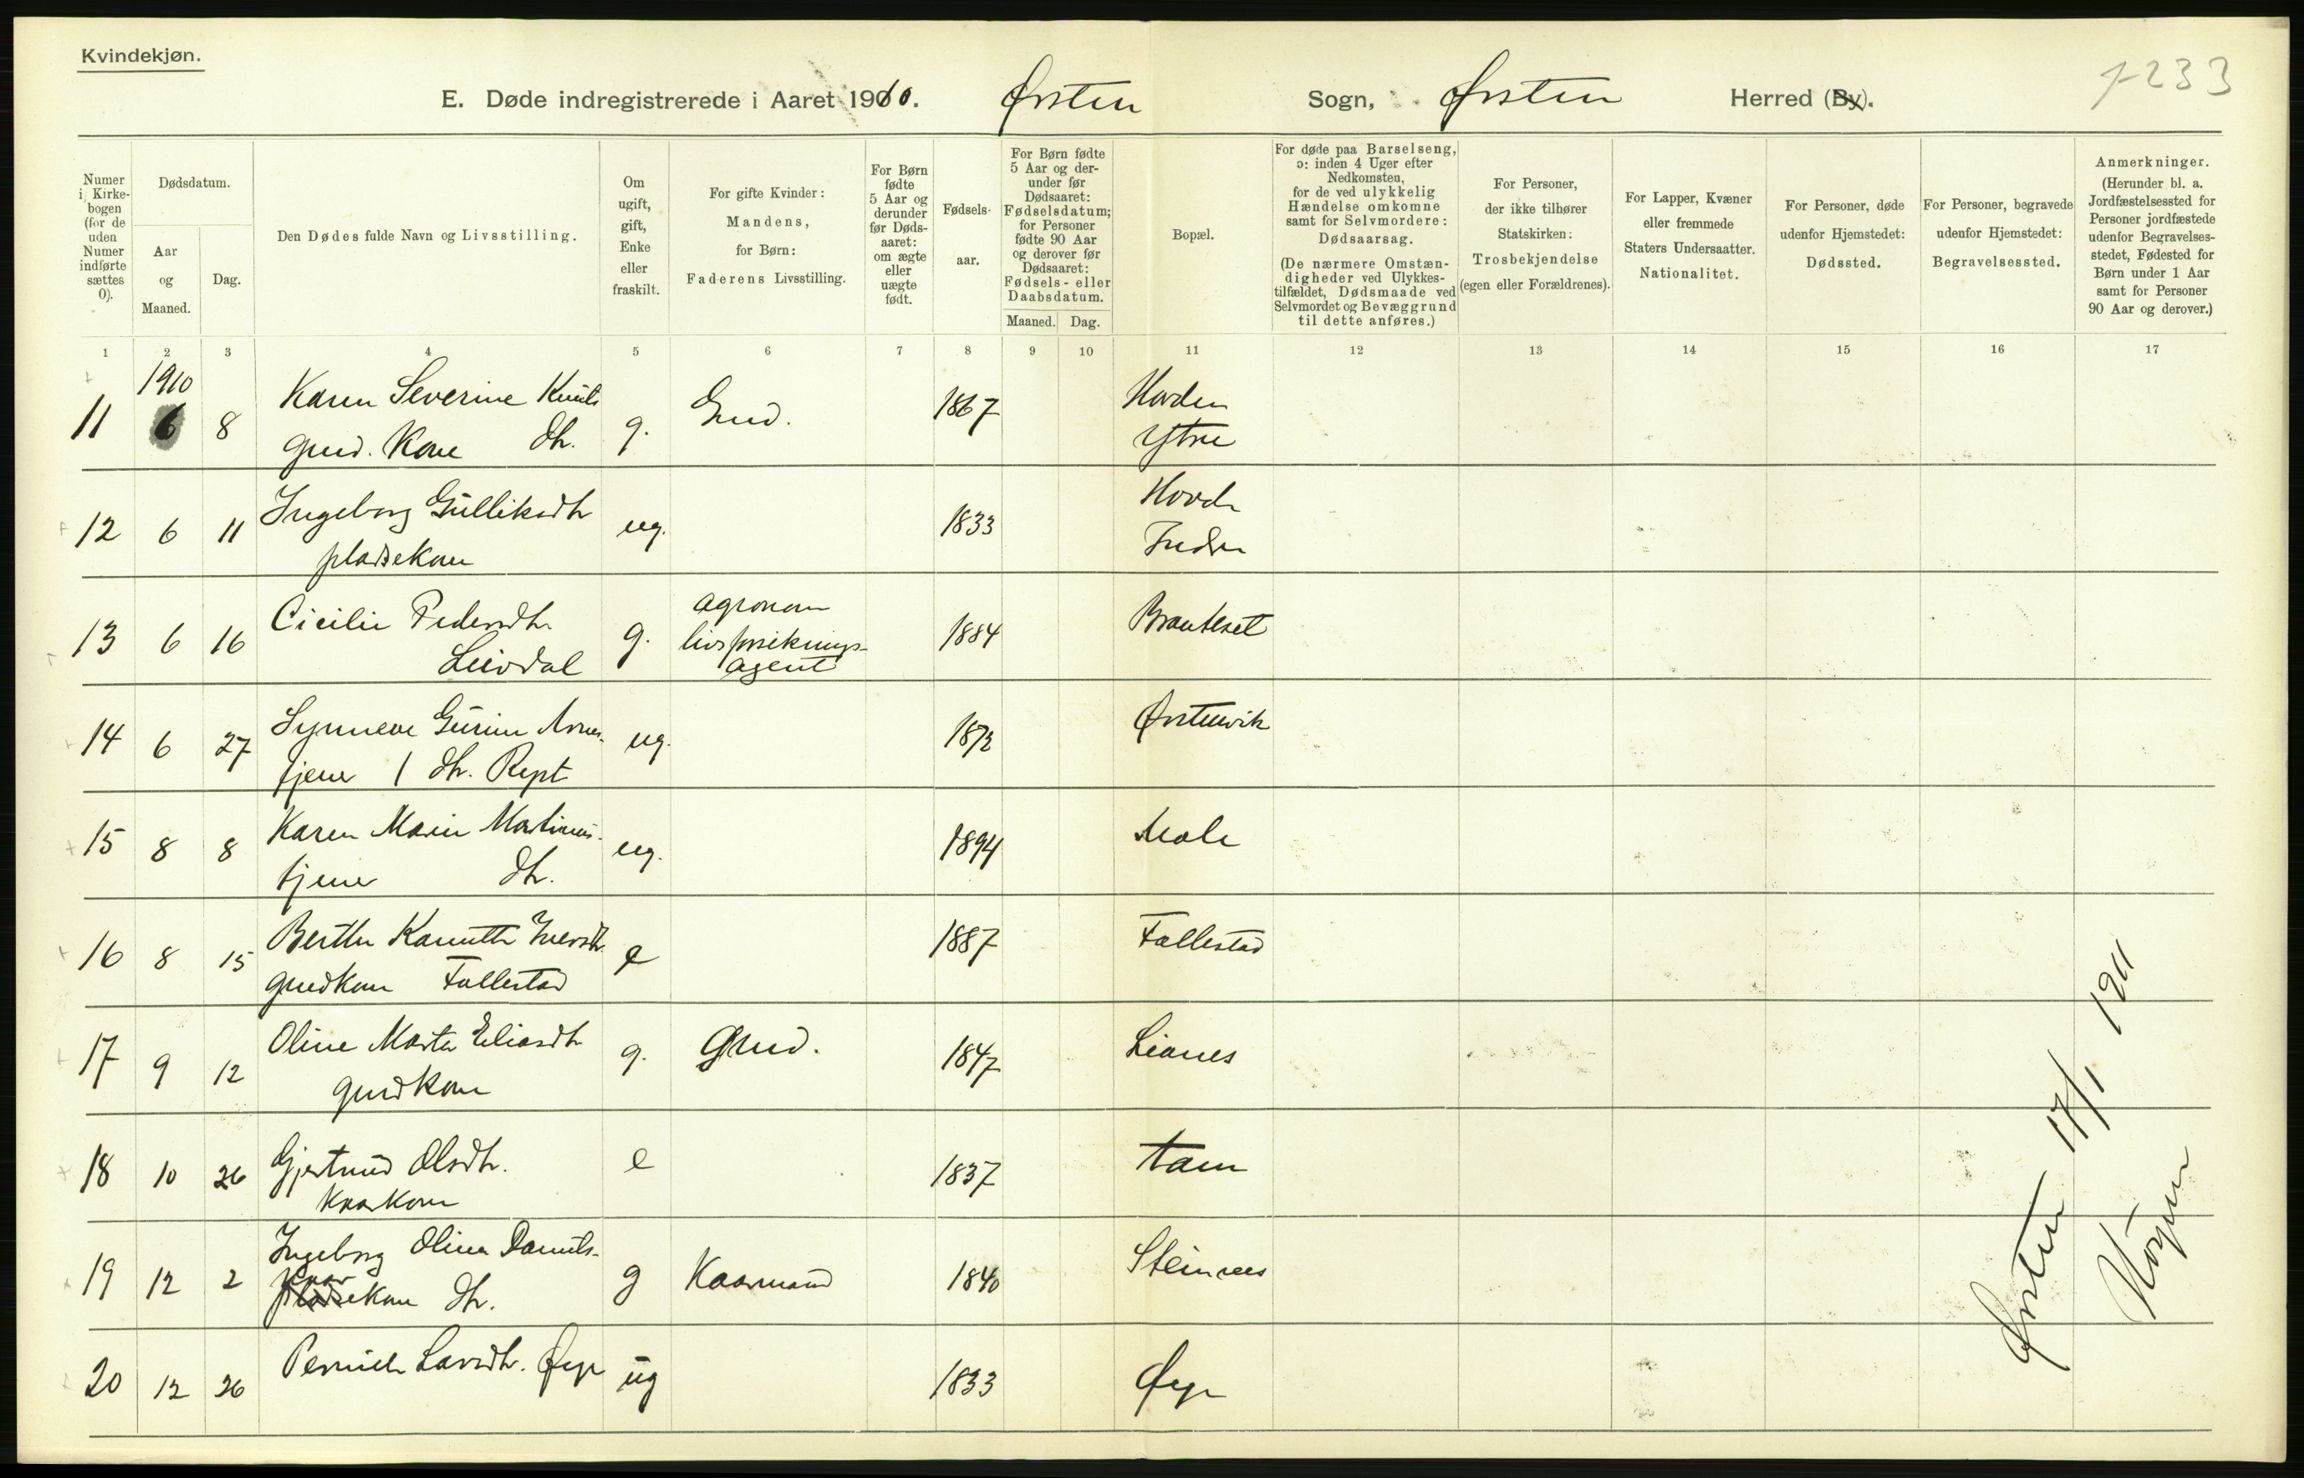 Kvindekjøn.
E. Døde indregistrerede i Aaret 1910. Ørsten Sogn, Ørsten Herred (By).
7233
Numer i Kirke-bogen (for de uden Numer indførte sættes 0).
Dødsdatum.
Aar og Maaned.
Dag.
Den Dødes fulde Navn og Livsstilling.
Om ugift, gift, Enke eller fraskilt.
For gifte Kvinder: Mandens, for Børn: Faderens Livsstilling.
For Børn fødte 5 Aar og derunder før Døds-aaret: om ægte eller uægte født.
Fødsels-aar.
For Børn fødte 5 Aar og der-under før Dødsaaret: Fødselsdatum; for Personer fødte 90 Aar og derover før Dødsaaret: Fødsels- eller Daabsdatum.
Maaned. Dag.
Bopæl.
For døde paa Barselseng, ɔ: inden 4 Uger efter Nedkomsten, for de ved ulykkelig Hændelse omkomne samt for Selvmordere: Dødsaarsag. (De nærmere Omstæn-digheder ved Ulykkes-tilfældet, Dødsmaade ved Selvmordet og Bevæggrund til dette anføres.)
For Personer, der ikke tilhører Statskirken: Trosbekjendelse (egen eller Forældrenes).
For Lapper, Kvæner eller fremmede Staters Undersaatter. Nationalitet.
For Personer, døde udenfor Hjemstedet: Dødssted.
For Personer, begravede udenfor Hjemstedet: Begravelsessted.
Anmerkninger. (Herunder bl. a. Jordfæstelsessted for Personer jordfæstede udenfor Begravelses-stedet, Fødested for Børn under 1 Aar samt for Personer 90 Aar og derover.)
1 2 3 4 5 6 7 8 9 10 11 12 13 14 15 16 17
1910
11 6 8 Karen Severine Knuts dtr. Gmd. Kone g. Gmd. 1867 Hovden Ytre
12 6 11 Ingeborg Gulliksdtr pladsekone ug. 1833 Hovde Indre
13 6 16 Cicilie Pedersdtr Leivdal g. agronom livsforsikrings-agent 1884 Brauteset
14 6 27 Synneve Gurine Arnes- dtr. tjener ug. 1872 Ørstenvik
15 8 8 Karen Marie Martinus- dtr. tjener ug. 1894 Mole
16 8 15 Berthe Iversdtr gmdkone Follestad e 1887 Follestad
17 9 12 Oline Marta Eliasdtr gmdkone g. Gmd. 1847 Lianes
18 10 26 Gjertrud Olsdtr. Kaarkone e 1837
19 12 2 Ingeborg Oline Daniels- dtr. Kaar pladsekone g Kaarmand 1840 Steinnes
20 12 26 Pernille Larsdtr. Øye ug 1833 Øye
Ørsten 17/1 1911